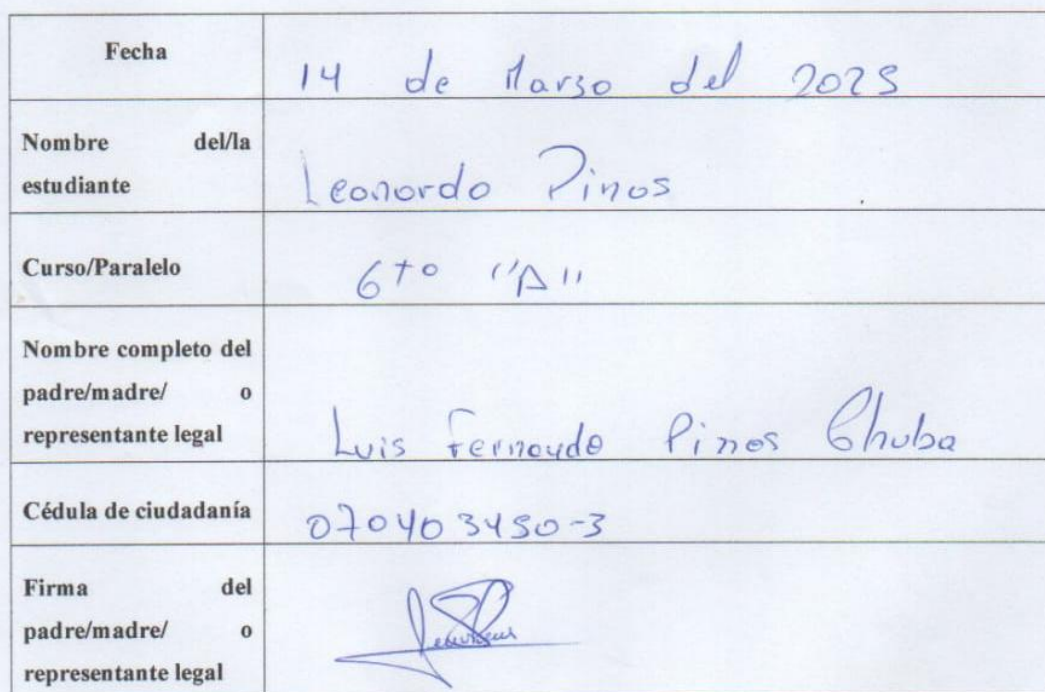 Fecha
14 de Marzo del 2025
Nombre del/la
estudiante
Leonardo Pinos
Curso/Paralelo
6to "A"
Nombre completo del
padre/madre/ o
representante legal
Luis Fernando Pinos Chuba
Cédula de ciudadanía
070403450-3
Firma del
padre/madre/ o
representante legal